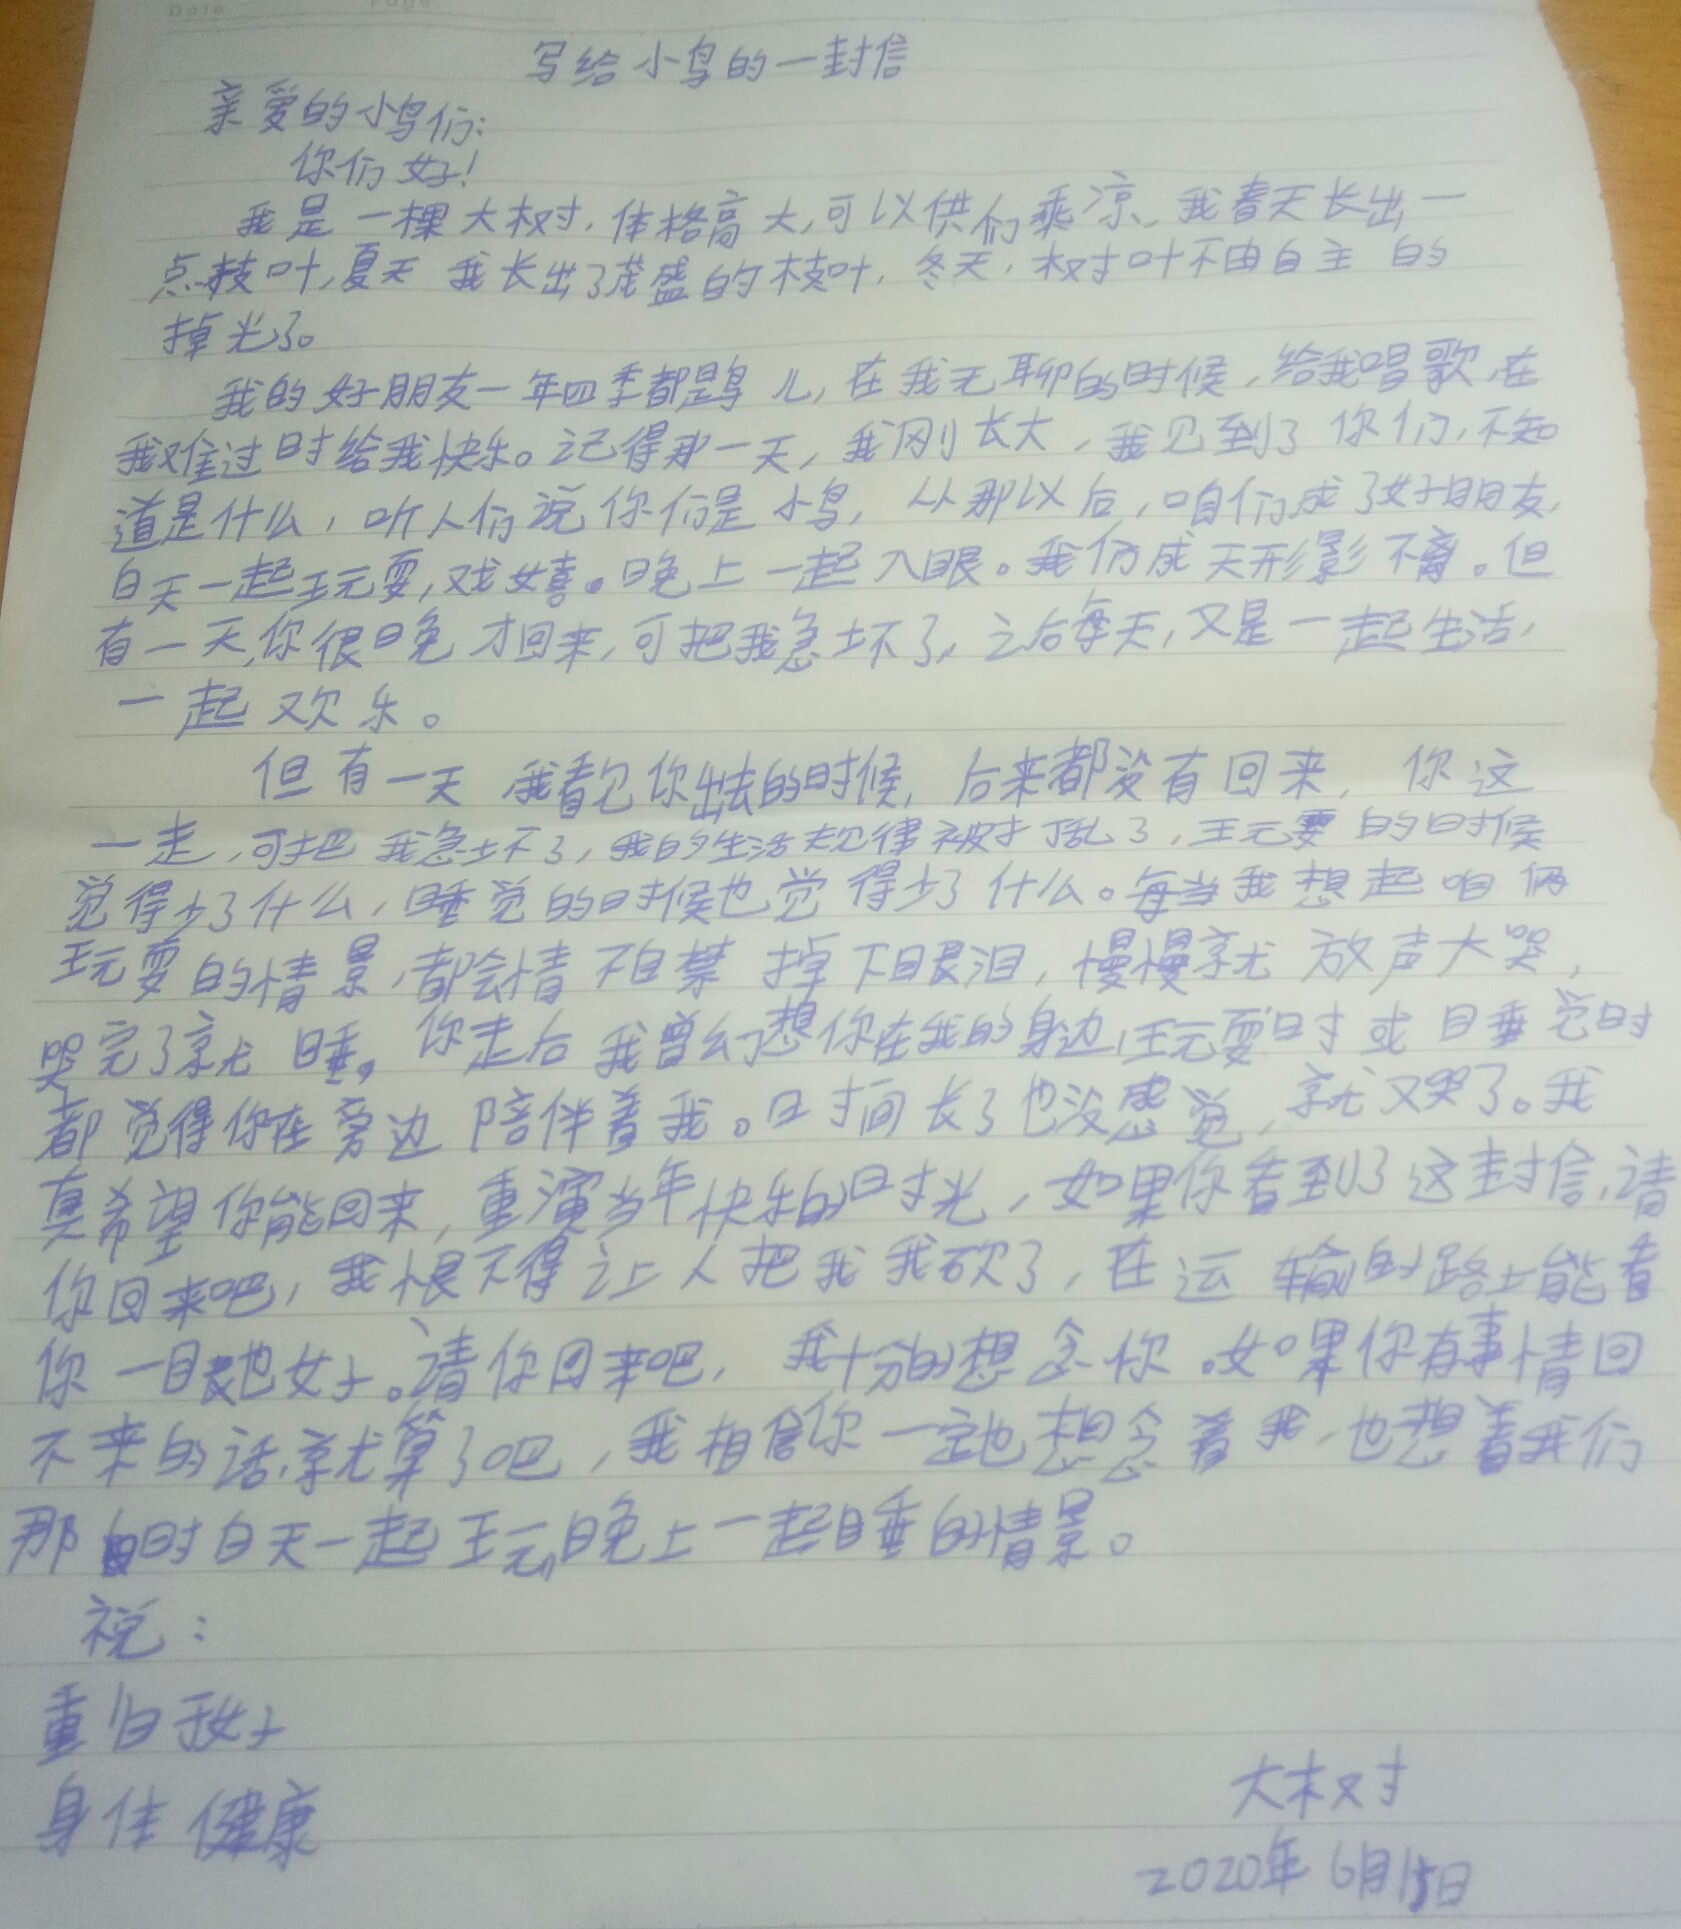 Date Page
写给小鸟的一封信
亲爱的小鸟们:
你们好!
我是一棵大树,体格高大,可以供们乘凉、我春天长出一
点枝叶,夏天我长出了茂盛的枝叶,冬天,树叶不由自主的
掉光了。
我的好朋友一年四季都是鸟儿,在我无聊的时候,给我唱歌,在
我难过时给我快乐。记得那一天,我刚长大,我见到了你们,不知
道是什么,听人们说你们是小鸟,从那以后,咱们成了好朋友,
白天一起玩耍,戏嬉。晚上一起入眠。我们成天形影不离。但
有一天,你很晚才回来,可把我急坏了,之后每天,又是一起生活,
一起欢乐。
但有一天我看见你出去的时候,后来都没有回来,你这
一走,可把我急坏了,我的生活规律被打乱了,玩耍的时候
觉得少了什么,睡觉的时候也觉得少了什么。每当我想起咱俩
玩耍的情景,都会情不自禁掉下眼泪,慢慢就放声大哭,
哭完了就睡。你走后我曾幻想你在我的身边,玩耍时或睡觉时
都觉得你在旁边陪伴着我。时间长了也没感觉,就又哭了。我
真希望你能回来,重演当年快乐的时光,如果你看到了这封信,请
你回来吧,我恨不得让人把我我砍了,在运输的路上能看
你一眼也好。请你回来吧,我十分的想念你。如果你有事情回
不来的话,就算了吧,我相信你一定也想念着我,也想着我们
那时白天一起玩,晚上一起睡的情景。
祝:
重归于好
身体健康
大树
2020年6月15日